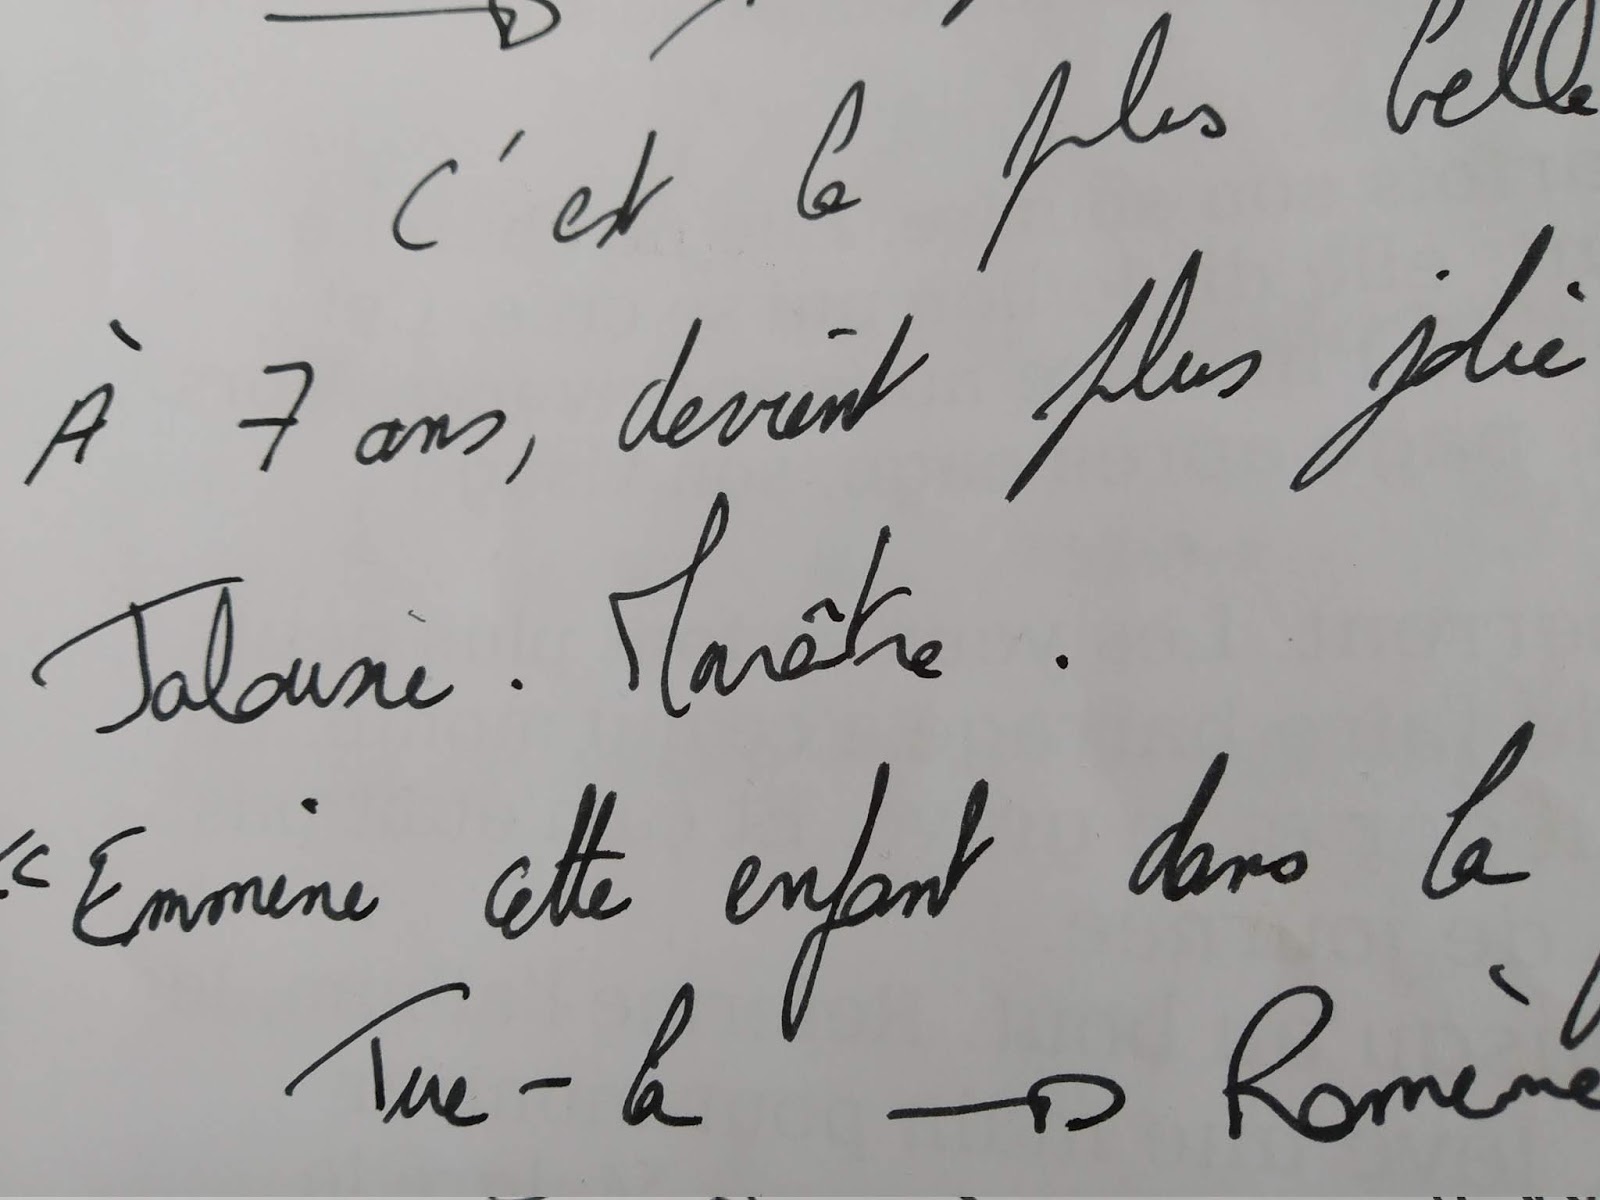 c'est la plus belle
À 7 ans, devient plus jolie
Jalousie. Marâtre.
« Emmène cette enfant dans la
Tue-la → Ramène